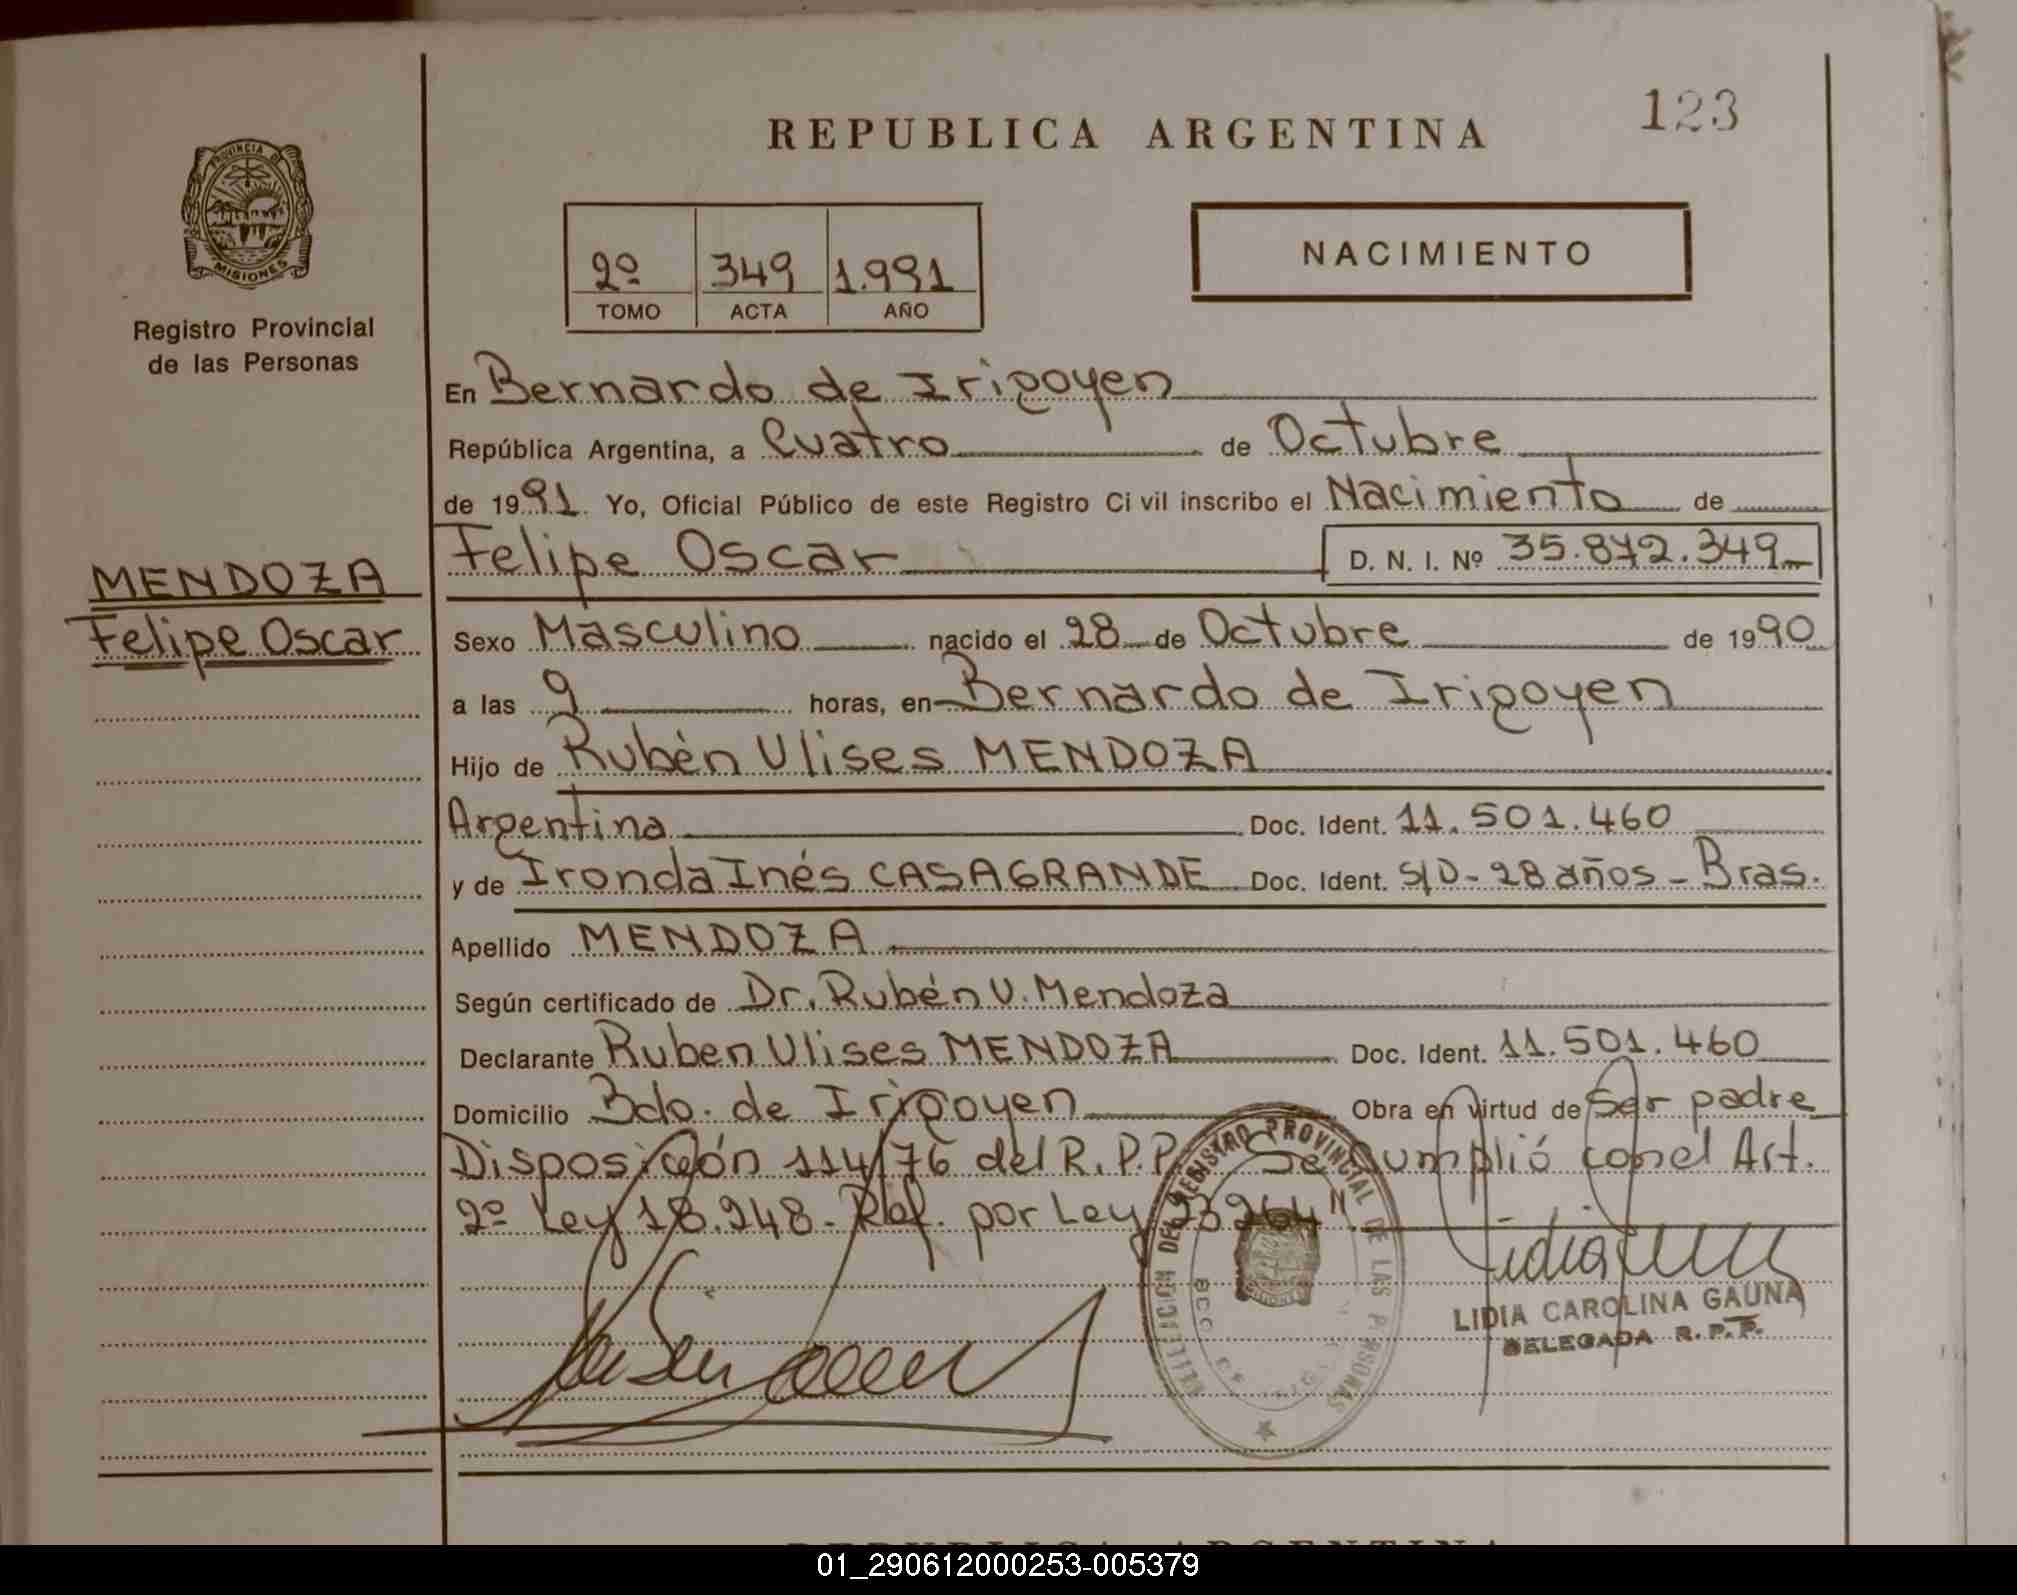 REPUBLICA ARGENTINA
123
PROVINCIA DE
MISIONES
Registro Provincial
de las Personas
2º 349 1.991
TOMO ACTA AÑO
NACIMIENTO
En Bernardo de Irigoyen
República Argentina, a Cuatro de Octubre
de 1991. Yo, Oficial Público de este Registro Civil inscribo el Nacimiento de
MENDOZA
Felipe Oscar
Felipe Oscar D. N. I. Nº 35.872.349
Sexo Masculino nacido el 28 de Octubre de 1990
a las 9 horas, en Bernardo de Irigoyen
Hijo de Rubén Ulises MENDOZA
Argentina Doc. Ident. 11.501.460
y de Ironda Inés CASAGRANDE Doc. Ident. S/D - 28 años - Bras.
Apellido MENDOZA
Según certificado de Dr. Rubén U. Mendoza
Declarante Ruben Ulises MENDOZA Doc. Ident. 11.501.460
Domicilio Bdo. de Irigoyen Obra en virtud de Ser padre
Disposición 114/76 del R.P.P. Se cumplió con el Art.
2º Ley 18.248 - Ref. por Ley 23264"
DEL REGISTRO PROVINCIAL DE LAS PERSONAS
LIDIA CAROLINA GAUNA
DELEGADA R. P. P.
REPUBLICA ARGENTINA
01_290612000253-005379